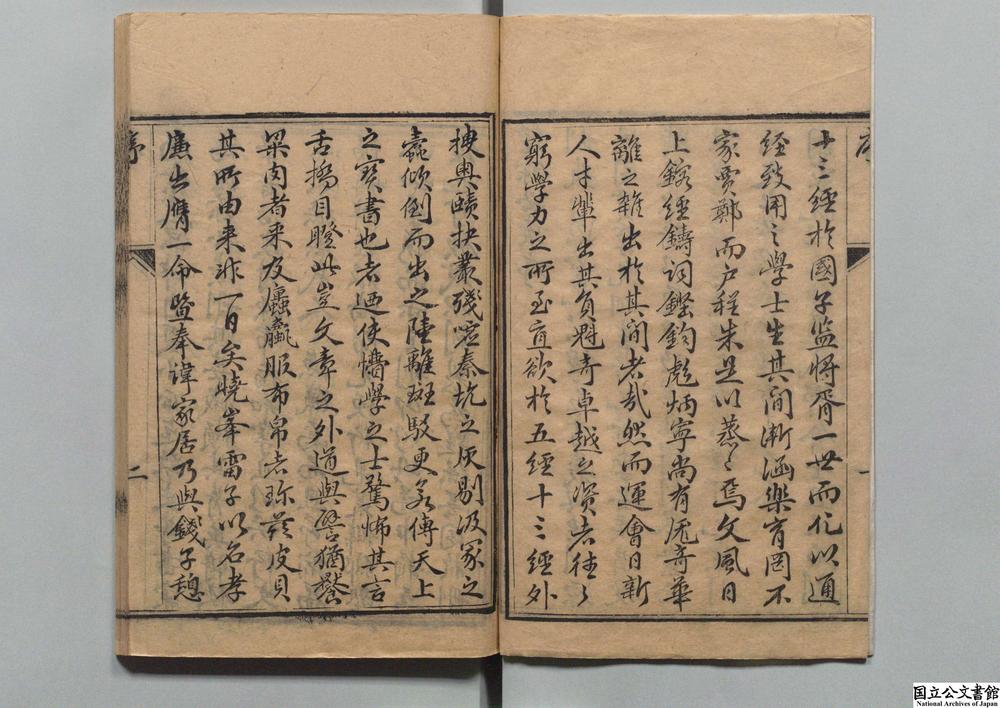 十三經於國子监将胥一世而化以通
經致用之學士生其間漸涵樂育罔不
家賈鄭而户程朱是以蒸〻焉文風日
上鎔經鑄词鏗鈞彪炳寧尚有厖奇華
離之雜出於其间者哉然而運會日新
人才輩出其負魁奇卓越之资者往〻
窮學力之所至直欲於五經十三經外
一
搜奥賾抉叢殘窓秦坑之灰剔汲冢之
蠧倾倒而出之陸離斑駁更若傳天上
之寳書也者迺使懵學之士驚怖其言
舌撟目瞪此豈文章之外道與譬猶饜
粱肉者来友廬蠃服布帛者珎兹皮貝
其所由来非一日矣曉峯雷子以名孝
廉出膺一命暨奉諱家居乃與錢子憩
序
二
国立公文書館
National Archives of Japan